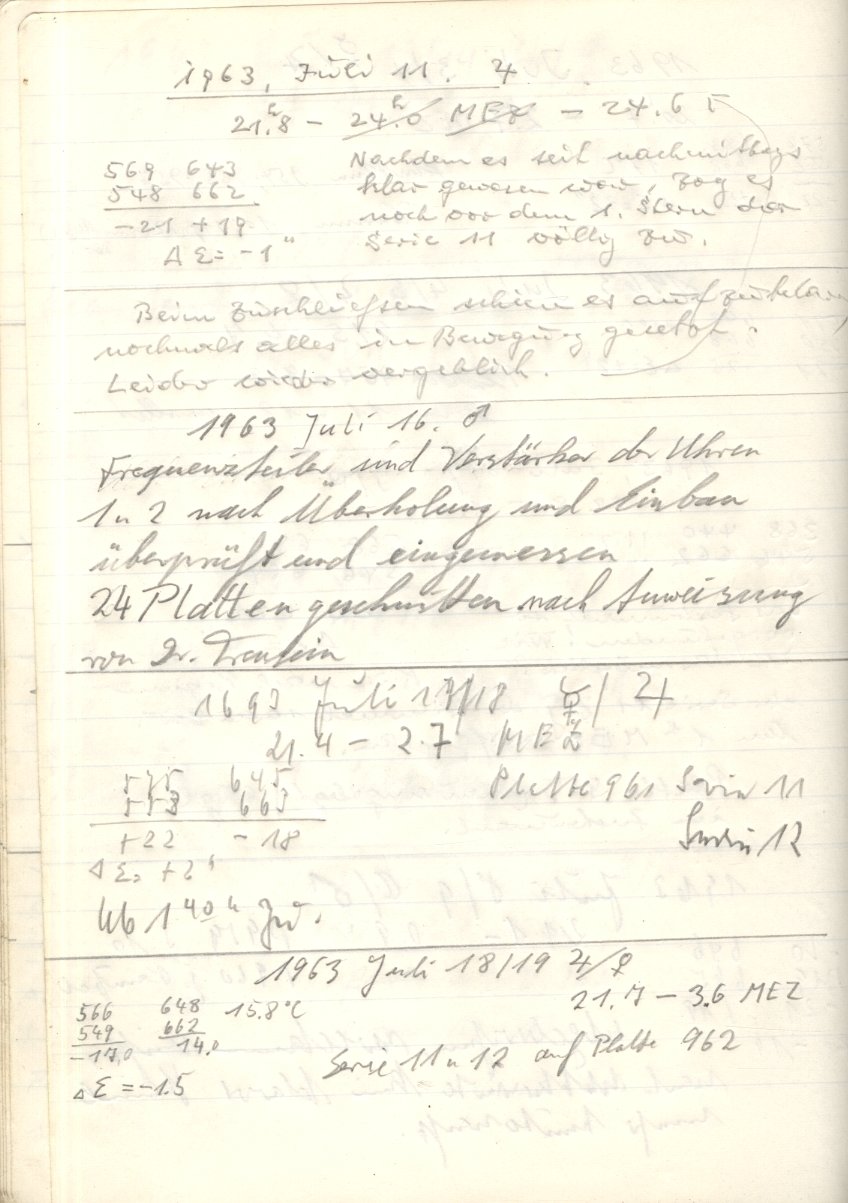 1963, Juli 11. ♃
21.ʰ8 – 24.ʰ0 MEZ – 24.6
569 643
548 662
-21 +19
Δ Σ = -1"
Nachdem es seit nachmittags
klar gewesen war, zog es
noch vor dem 1. Stern der
Serie 11 völlig zu.
Beim Zuschließen schien es aufzuklaren,
nochmals alles in Bewegung gesetzt.
Leider wieder vergeblich.
1963 Juli 16. ♂
Frequenzteiler und Verstärker der Uhren
1 u 2 nach Überholung und Einbau
überprüft und eingemessen
24 Platten geschnitten nach Anweisung
von Dr.
1693 Juli 17/18 ☿/♃
21.4 – 2.7 MEZ
575 645
553 663
+22 -18
Δ Σ = +2"
Platte 961 Serie 11
Serie 12
Ab 1 40 h zu.
1963 Juli 18/19 ♃/♀
21.7 – 3.6 MEZ
566 648 15.8°C
549 662
-17,0 14,0
Δ Σ = -1.5
Serie 11 u 12 auf Platte 962